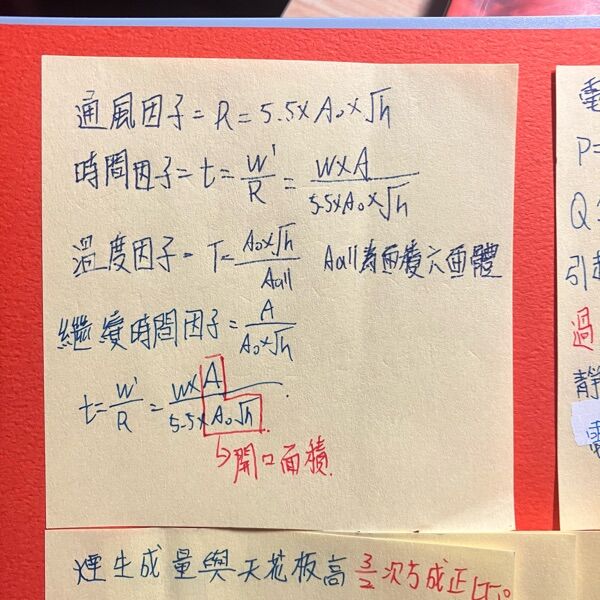 通風因子=R=5.5×A₀×√h
時間因子=t=W'/R=W×A/5.5×A₀×√h
溫度因子=T=A₀×√h/Aall Aall為面積六面體
繼續時間因子=A/A₀×√h
t=W'/R=W×A/5.5×A₀√h
↳開口面積
煙生成量與天花板高3/2次方成正比。
電
P=
Q
引起
過
靜
電